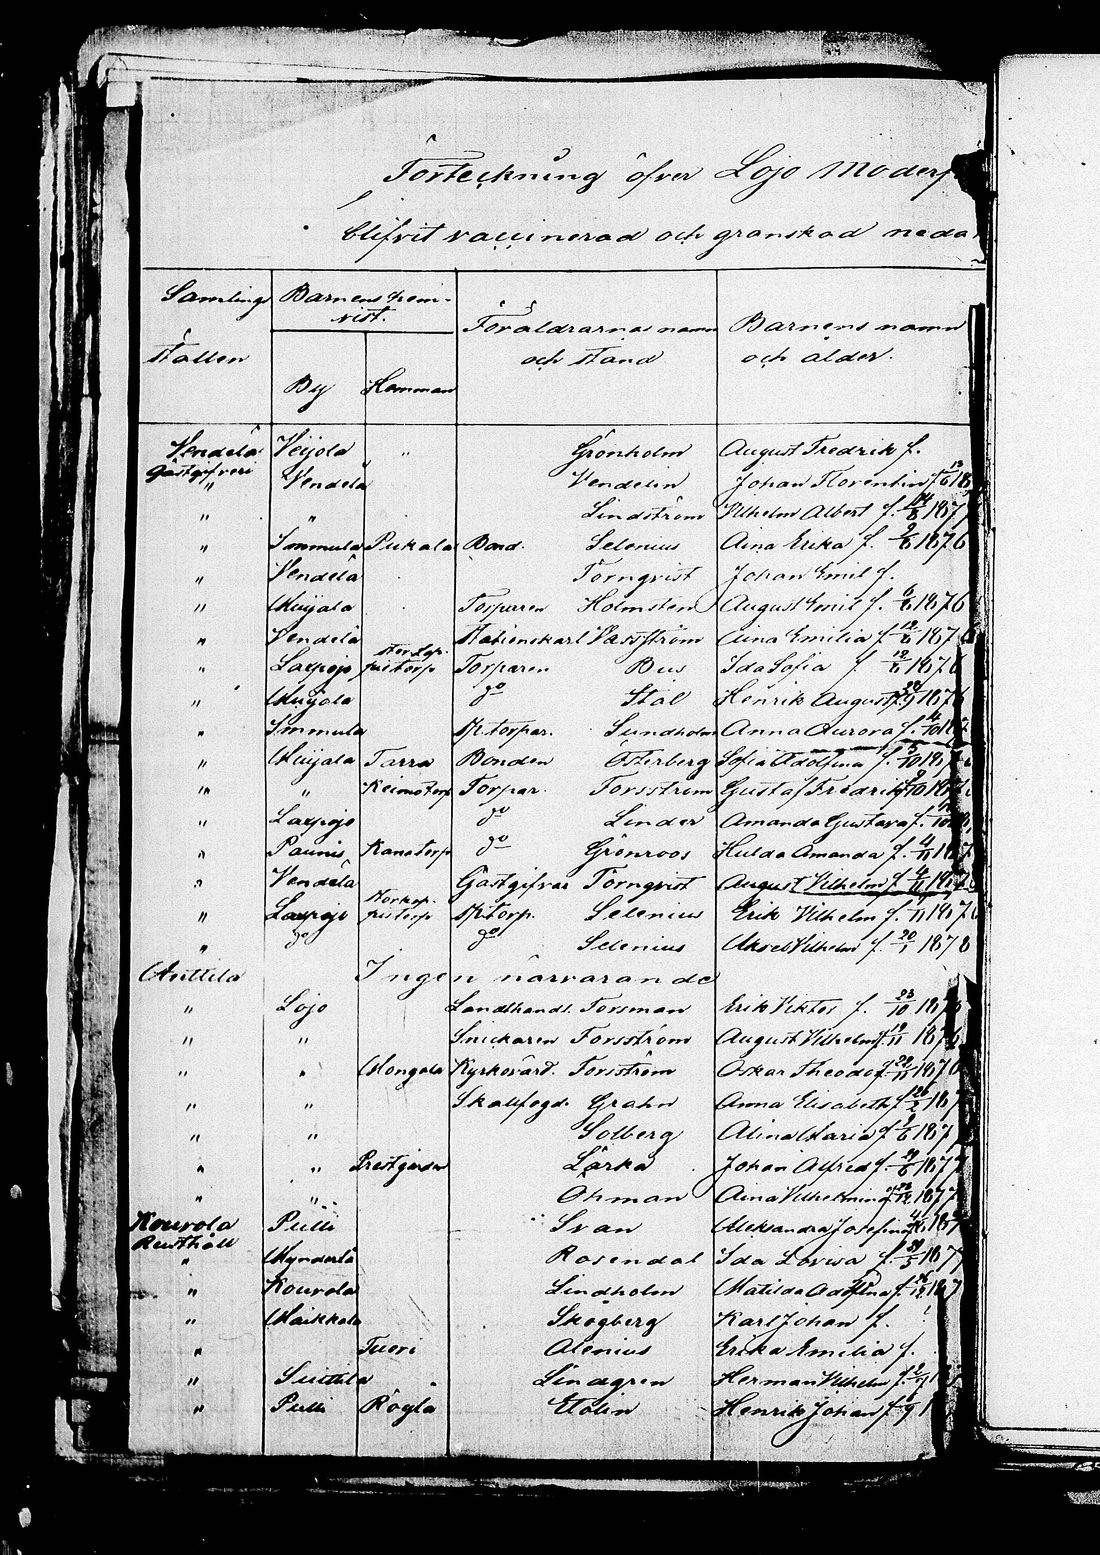 Förteckning öfver Lojo Moder
blifvit vaccinerad och granskad neda
Samlings Barnens hem-
vist. Föräldrarna namn Barnens namn
ställen och stånd och ålder.
By Hemman
Vendelä Veijola " Grönholm August Fredrik f.
Gästgifveri
" Vendelä Vendelin Johan Florentin f. 13/6 18
" " Lindström Vilhelm Albert f. 14/8 187
" Immula Pukala Bond. Selenius Aina Erika f. 9/8 1876
" Vendelä Törnqvist Johan Emil f.
" Muijala Torparen Holmsten August Emil f. 6/8 1876
" Vendelä Stationskarl Vassström Aina Emilia f. 12/8 187
" Laxpojo pustorp Torparen Bus Ida Sofia f. 12/8 1876
" Muijola do Stål Henrik August 187
" Immula Sp. torpar. Sundholm Anna Aurora f. 4/10 187
" Muijala Tarra Bonden Österberg Sofia Adolfina f. 5/10 187
" " Keimotorp Torpar. Forsström Gustaf Fredrik
" Laxpojo do Linder Amanda Gustava f.
" Paunis Kanatorp do Grönroos Hulda Amanda f. 4/11 187
" Vendelä Gästgifvar Törnqvist August Vilhelm f. 4/11 187
" Laxpojo pustorp Sp. torp. Selenius Erik Vilhelm f. 1876
" do do Selenius Aksel Vilhelm f. 20/1 1878
Anttila Ingen närvarande
" Lojo Landthandl. Forsman Erik Viktor f. 23/10 187
" " Snickaren Forsström August Vilhelm f. 19/11 1876
" " Mongola Kyrkovärd. Forsström Oskar Theodor f. 187
" " Skallfogd. Grahn Anna Elisabeth f. 187
" " Solberg Alina Maria f. 187
" " Prestgården Lärka Johan Alfred f. 29/6 1877
" " Öhman Aina Vilhelmina 1877
Kouvola Pulli Svan Aleksandra Josefina 187
Rusthåll
" Mynderlä Rosendal Ida Lovisa f. 31/5 1877
" Kouvola Lindholm Matilda Adolfina f. 187
" Maikkala Skogberg Karl Johan f.
" Tuori Alenius Erika Emilia f.
" Suittila Lindgren Herman Vilhelm f.
" Pulli Rögla Elolin Henrik Johan f.